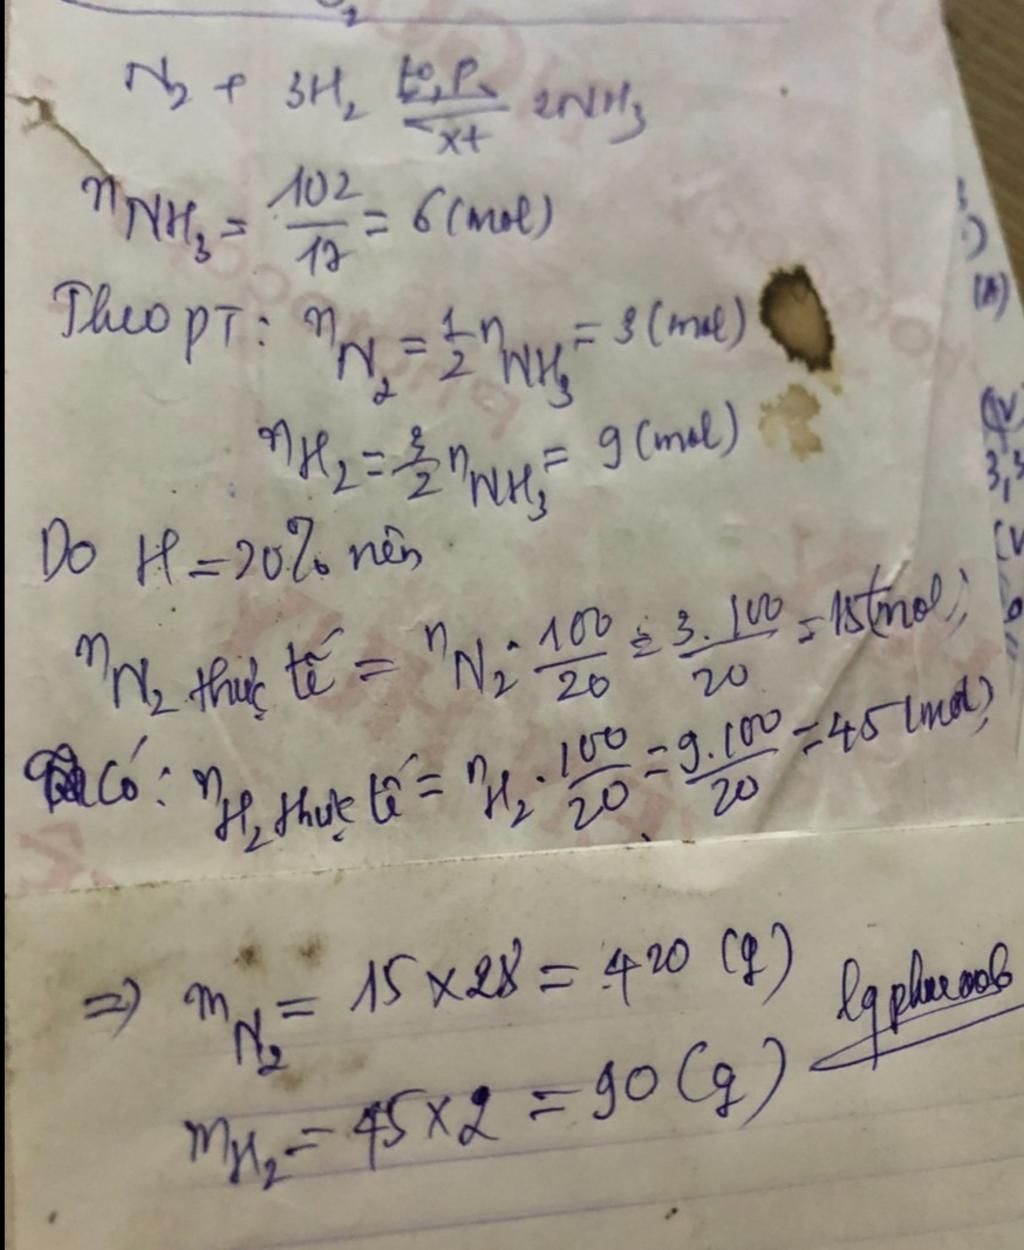 N₂ + 3H₂ t⁰,P,xt 2NH₃
n NH₃ = 102/17 = 6 (mol)
Theo PT: n N₂ = 1/2 n NH₃ = 3 (mol)
n H₂ = 3/2 n NH₃ = 9 (mol)
Do H = 20% nên
n N₂ thực tế = n N₂ · 100/20 = 3.100/20 = 15 (mol)
có: n H₂ thực tế = n H₂ · 100/20 = 9.100/20 = 45 (mol)
=> m N₂ = 15 × 28 = 420 (g)
lqphuoocb
m H₂ = 45 × 2 = 90 (g)
(A)
3,3